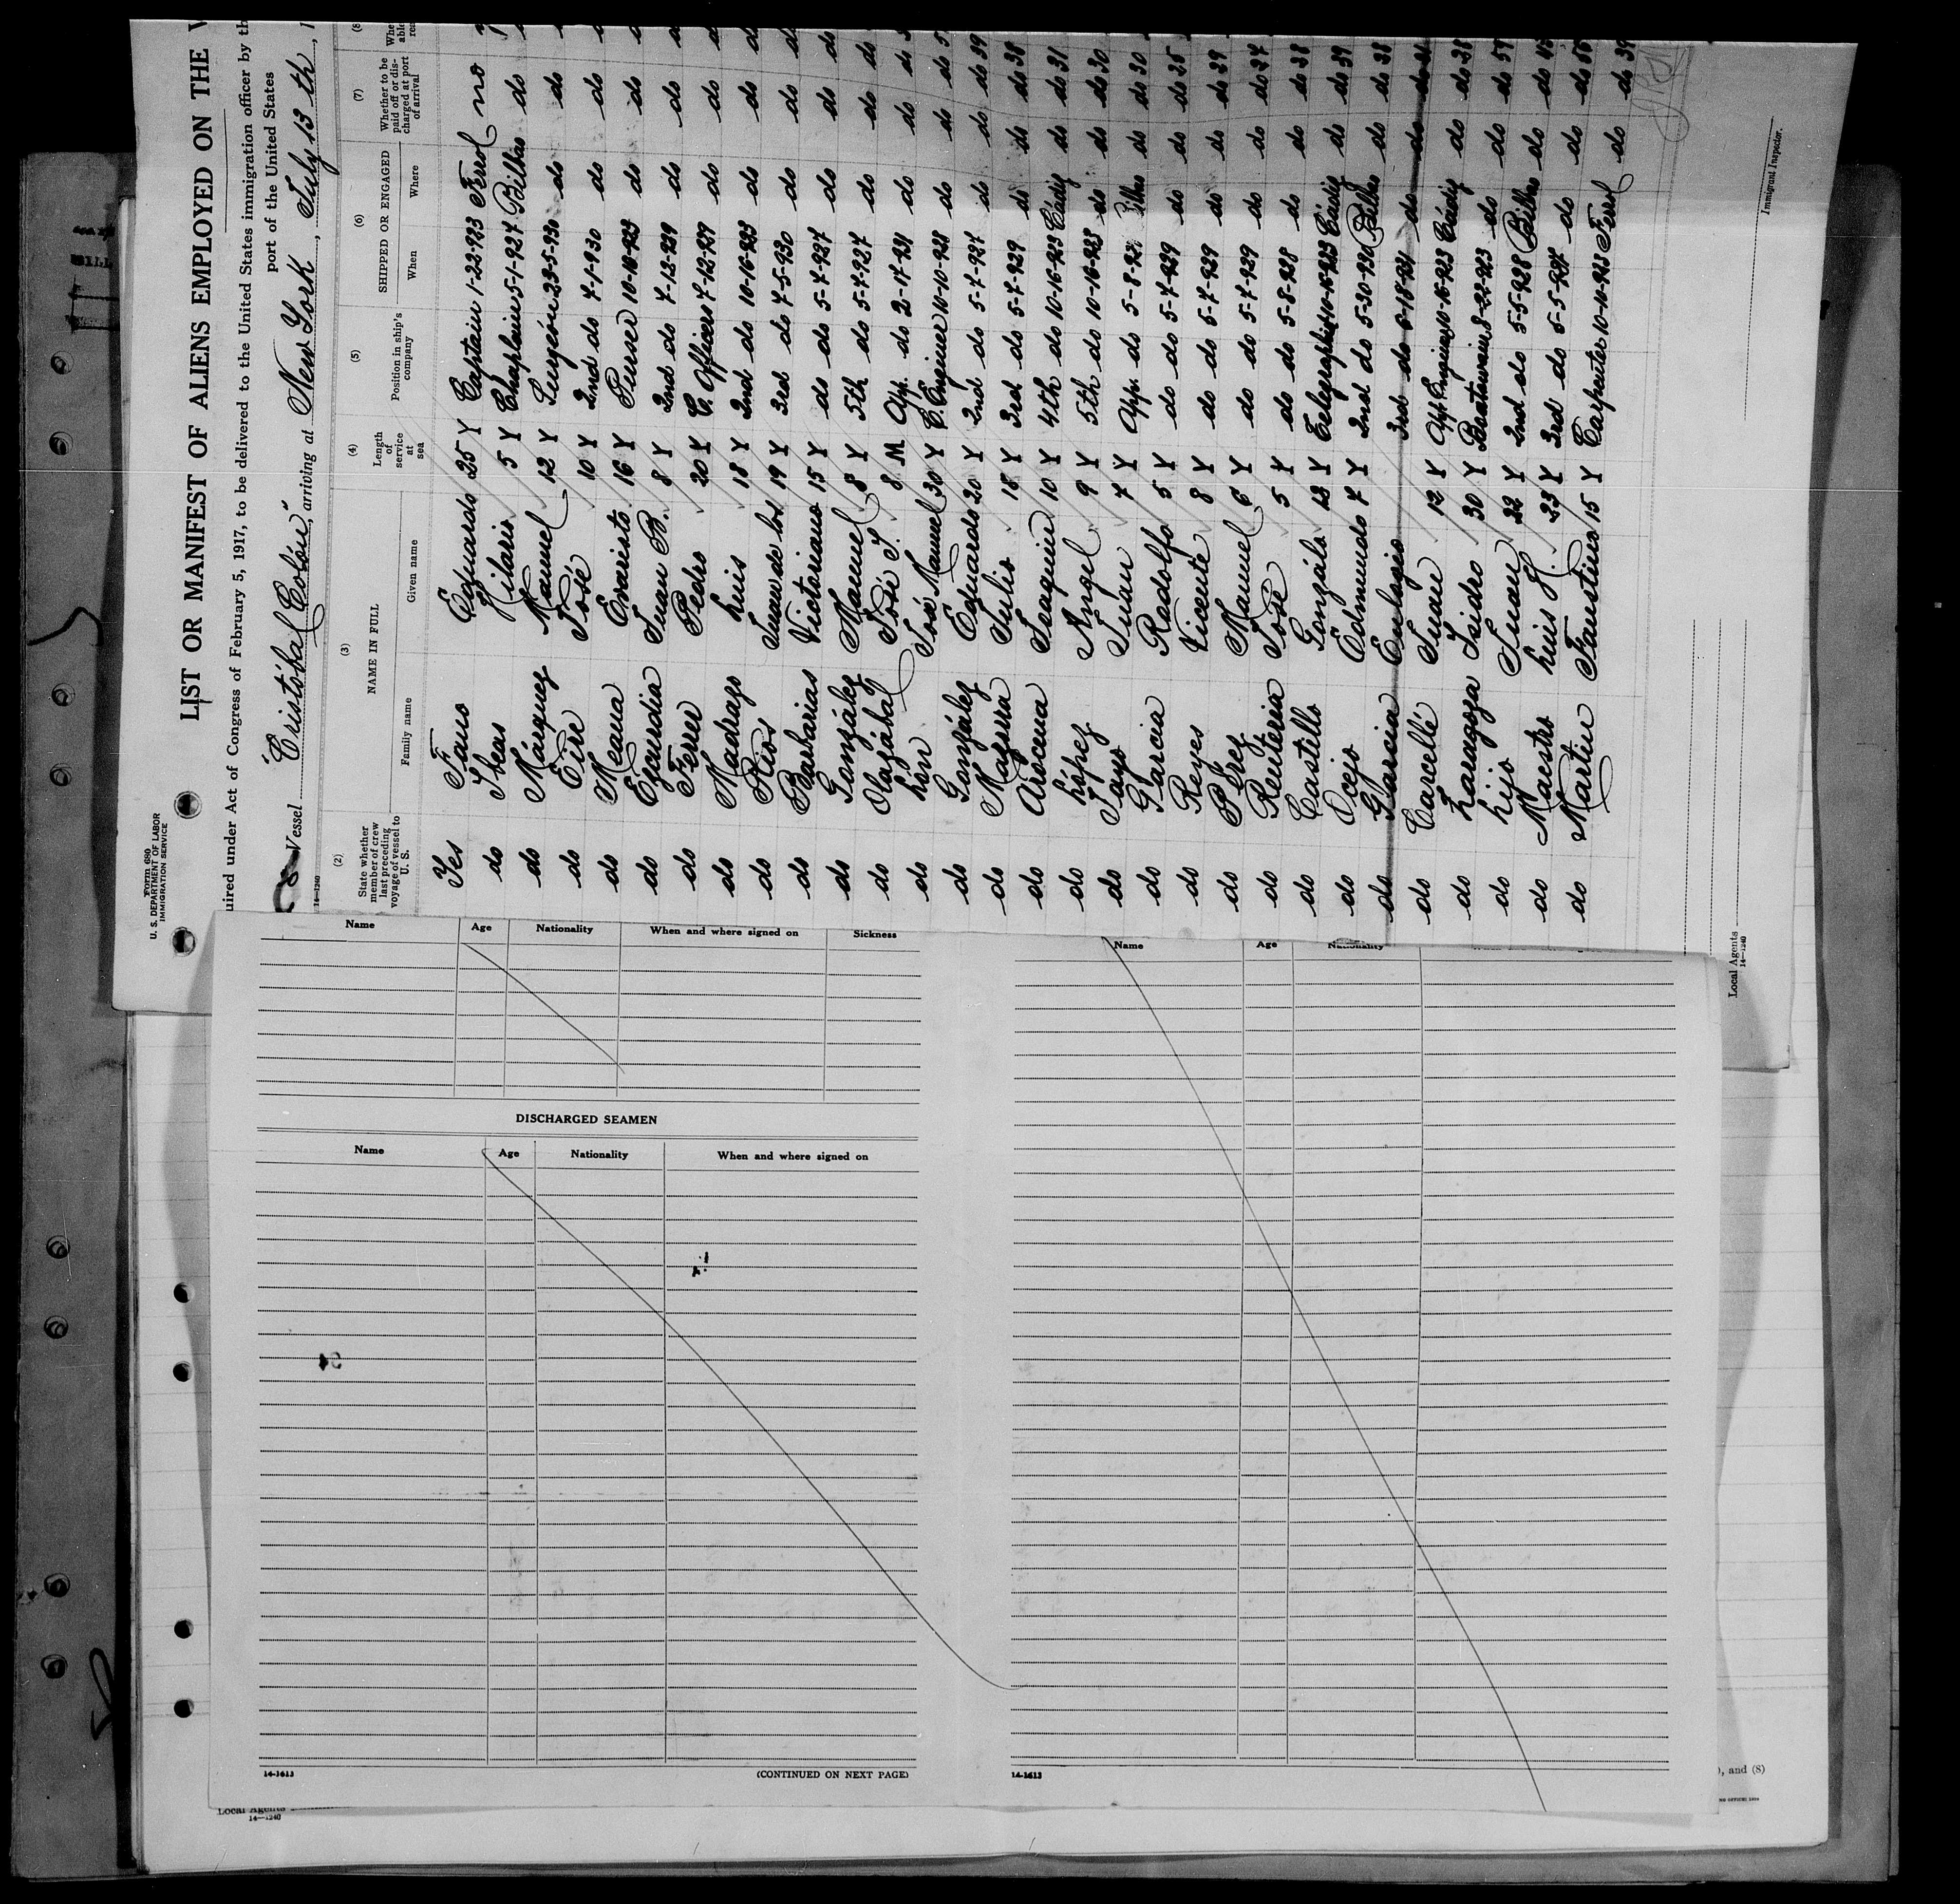 Form 680
U. S. DEPARTMENT OF LABOR
IMMIGRATION SERVICE
LIST OR MANIFEST OF ALIENS EMPLOYED ON THE
uired under Act of Congress of February 5, 1917, to be delivered to the United States immigration officer by th
port of the United States
Vessel "Cristóbal Colón", arriving at New York, July 13 th, 1
14-1240
(2) (3) (4) (5) (6) (7) (8
State whether member of crew last preceding voyage of vessel to U. S. NAME IN FULL Family name Given name Length of service at sea Position in ship's company SHIPPED OR ENGAGED When Where Whether to be paid off or discharged at port of arrival
Yes Fano Eduardo 25 Y Captain 1-22-923 Ferrol no
do Ibeas Hilario 5 Y Chaplain 5-1-927 Bilbao do
do Márquez Manuel 12 Y Surgeón 23-5-930 do do
do Eire José 10 Y 2nd do 4-1-930 do do
do Meana Evaristo 16 Y Purser 10-16-923 do do
do Ezcurdia Juan B. 8 Y 2nd do 7-12-929 do do
do Ferrer Pedro 20 Y C. Officers 7-12-929 do do
do Madrago Luis 18 Y 2nd do 10-16-923 do do
do Rios Juan de los 19 Y 3rd do 4-5-930 do do
do Barbarias Victoriano 15 Y do do 5-4-927 do do
do González Manuel 8 Y 5th do 5-4-927 do do
do Olazábal José I. 8 M App. do 2-17-931 do do
do Lión José Manuel 30 Y C. Engineer 10-10-928 do do
do González Eduardo 20 Y 2nd do 5-7-927 do do 39
do Magerra Julio 18 Y 3rd do 5-7-929 do do do 38
do Arocena Joaquin 10 Y 4th do 10-16-923 Cádiz do do 31
do López Angel 9 Y 5th do 10-16-923 do do do 30
do Tayo Juan 7 Y App. do 5-8-92 Bilbao do do 30
do Garcia Rodolfo 5 Y do do 5-7-929 do do do 25
do Reyes Vicente 8 Y do do 5-7-929 do do do 29
do Pérez Manuel 6 Y do do 5-7-929 do do do 27
do Reuteria José 5 Y do do 5-8-928 do do do 38
do Castillo Gonzálo 13 Y Telegraphist 10-16-923 Cádiz do do 39
do Ocejo Edmundo 7 Y 2nd do 5-30-930 Bilbao do do 38
do Garcia Eulogio 3rd do 6-18-931 do do do
do Carcellé Juan 12 Y App. Engineer 10-16-923 Cádiz do do 38
do Zaragoza Isidro 30 Y Boatswain 8-22-923 do do do 57
do Lijo Juan 22 Y 2nd do 5-5-928 Bilbao do do
do Maestro Luis H. 23 Y 3rd do 5-5-927 do do do 56
do Martin Faustino 15 Y Carpenter 10-16-923 Ferrol do do 39
Immigrant Inspector.
Local Agents
14-1240
Name Age Nationality When and where signed on Sickness
Name Age Nationality
DISCHARGED SEAMEN
Name Age Nationality When and where signed on
14-1613
(CONTINUED ON NEXT PAGE)
14-1613
), and (8)
Local Agents
14-1240